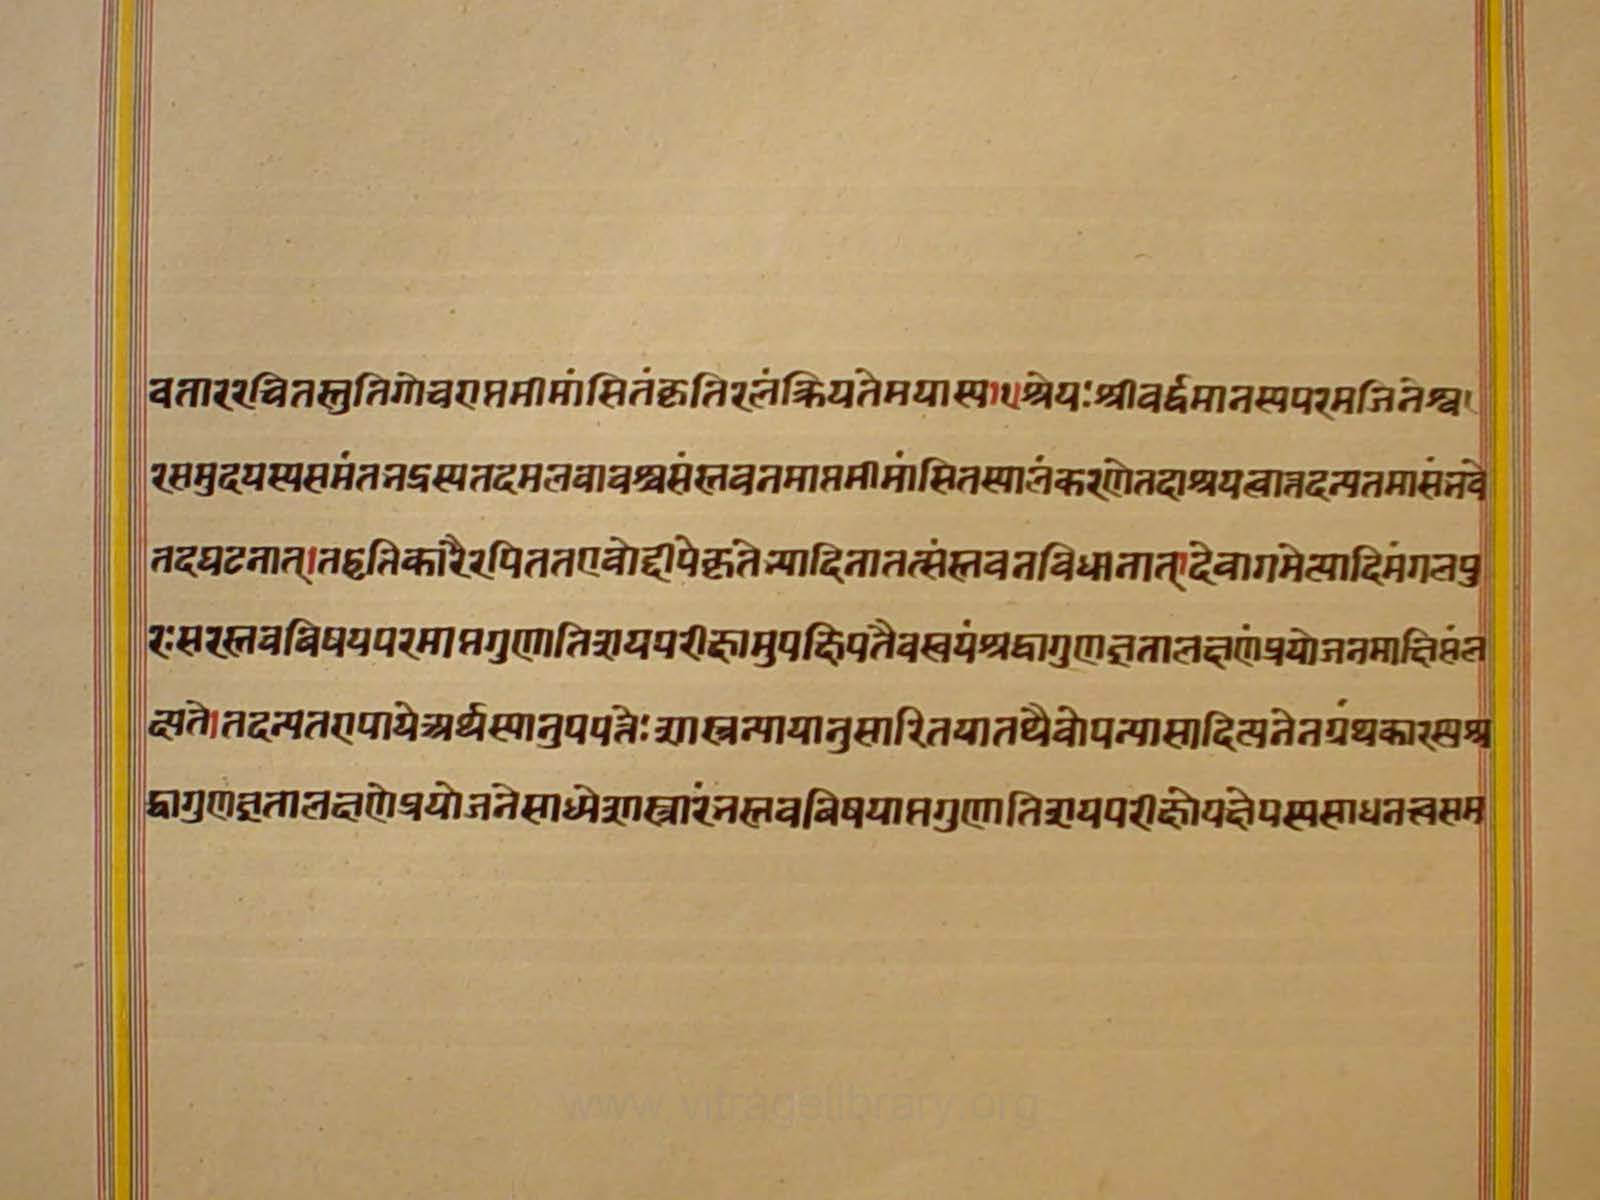 वताररचितस्तुतिगोचराप्तमीमांसितंकृतिरलंक्रियतेमयास्य।१।श्रेयःश्रीवर्द्धमानस्यपरमजिनेश्व
रसमुदयस्यसमंतभद्रस्यतदमलवाचश्चसंस्तवनमाप्तमीमांसितस्यालंकरणेतदाश्रयत्वात्तदन्यतमासंभवे
तदघटनात्।तद्वृत्तिकारैरपिततएवोद्दीपीकृतेत्यादिनातत्संस्तवनविधानात्।देवागमेत्यादिमंगलपु
रःसरस्तवविषयपरमाप्तगुणातिशयपरीक्षामुपक्षिपतैवस्वयंश्रद्धागुणज्ञतालक्षणंप्रयोजनमाक्षिप्तंल
क्ष्यते।तदन्यतरापायेअर्थस्यानुपपत्तेःशास्त्रन्यायानुसारितयातथैवोपन्यासादित्यनेनग्रंथकारस्यश्र
द्धागुणज्ञतालक्षणेप्रयोजनेसाध्येशास्त्रारंभस्तवविषयाप्तगुणातिशयपरीक्षोपक्षेपस्यसाधनत्वसम
www.vitragelibrary.org